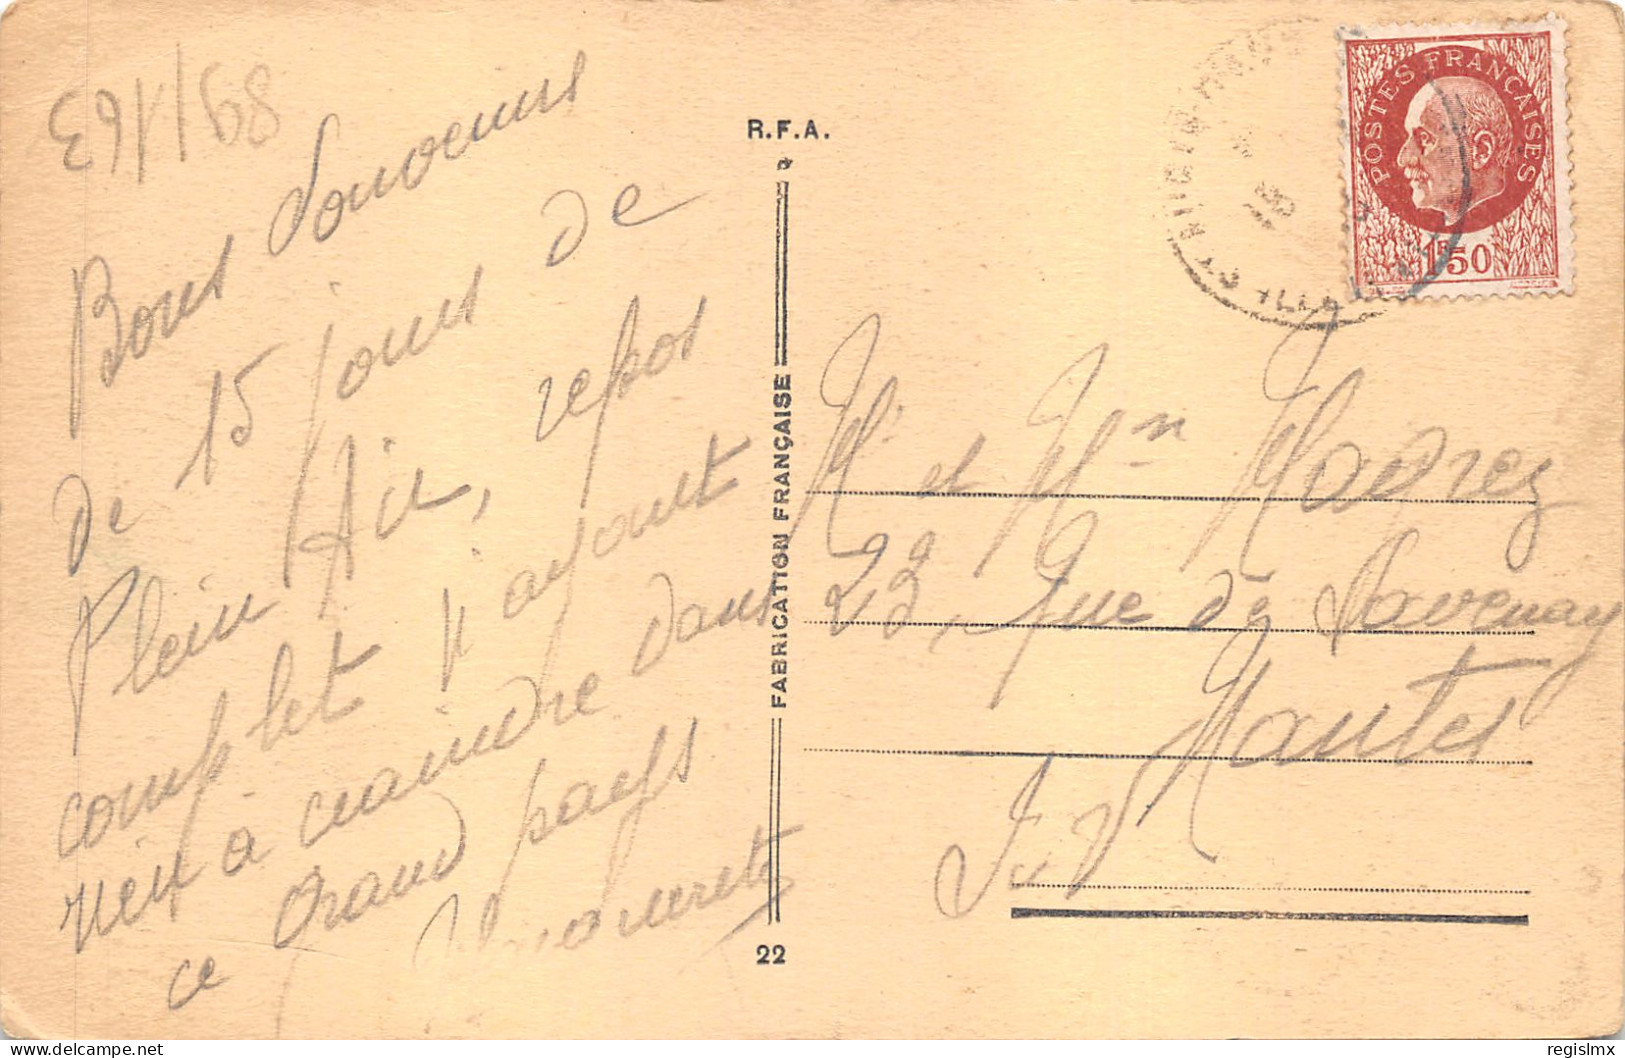 89/163
Bons Souvenirs
de 15 jours de
Plein Air, repos
complet n'ayant
rien à craindre dans
ce Grand pays
R.F.A.
FABRICATION FRANÇAISE
22
POSTES FRANÇAISES
1F50
Mr et Mme
23, Rue de Savenay
Nantes
regislmx
delcampe.net